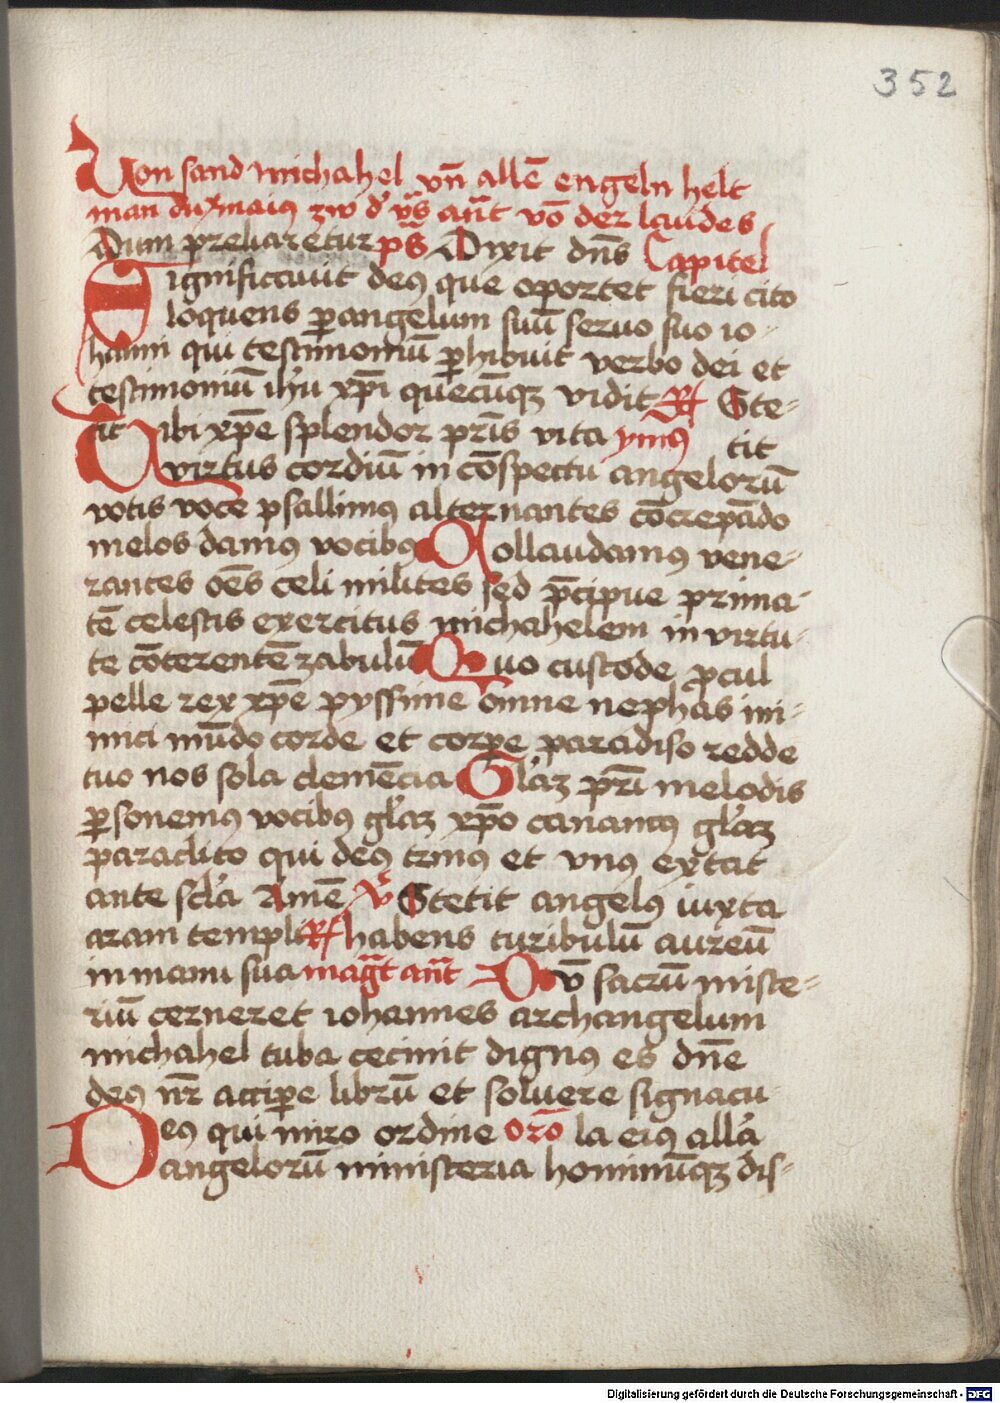 352
Von sand michahel vn̄ allē engeln helt
man dupmaiꝰ zw d' v̄s ant̄ vō der laudes
Dum preliaretur ps̄ Dixit dn̄s Capitel
Significauit deꝰ que oportet fieri cito
loquens ꝑ angelum suū seruo suo io-
hanni qui testimoniū ꝑhibuit verbo dei et
testimoniū ih̄u xp̄i quecūqꝫ vidit R͞ Ste-
tit Tibi xp̄e splendor pr̄is vita ymꝰ tit
virtus cordiū in cōspectu angelorū
votis voce psallimꝰ alternantes cōcrepādo
melos damꝰ vocibꝰ Collaudamꝰ vene-
rantes oēs celi milites sed p̄cipue prima-
tē celestis exercitus michahelem in virtu-
te cōterentē zabulū Quo custode ꝓcul
pelle rex xp̄e pyssime omne nephas ini-
mici mūdo corde et corꝑe paradiso redde
tuo nos sola clemēcia Gl'aꝫ pr̄i melodis
ꝑsonemꝰ vocibꝰ gl'aꝫ xp̄o canamꝰ gl'aꝫ
paraclito qui deꝰ trinꝰ et vnꝰ extat
ante scl'a Amē V̄ Stetit angelꝰ iuxta
aram templi R͞ habens turibulū aureū
in manu sua magt̄ ant̄ Dū sacrū miste-
riū cerneret iohannes archangelum
michahel tuba cecinit dignꝰ es dn̄e
deꝰ nr̄ accipe librū et soluere signacu
Deꝰ qui miro ordine orō la eiꝰ all'a
angelorū ministeria hominūqꝫ dis-
Digitalisierung gefördert durch die Deutsche Forschungsgemeinschaft - DFG